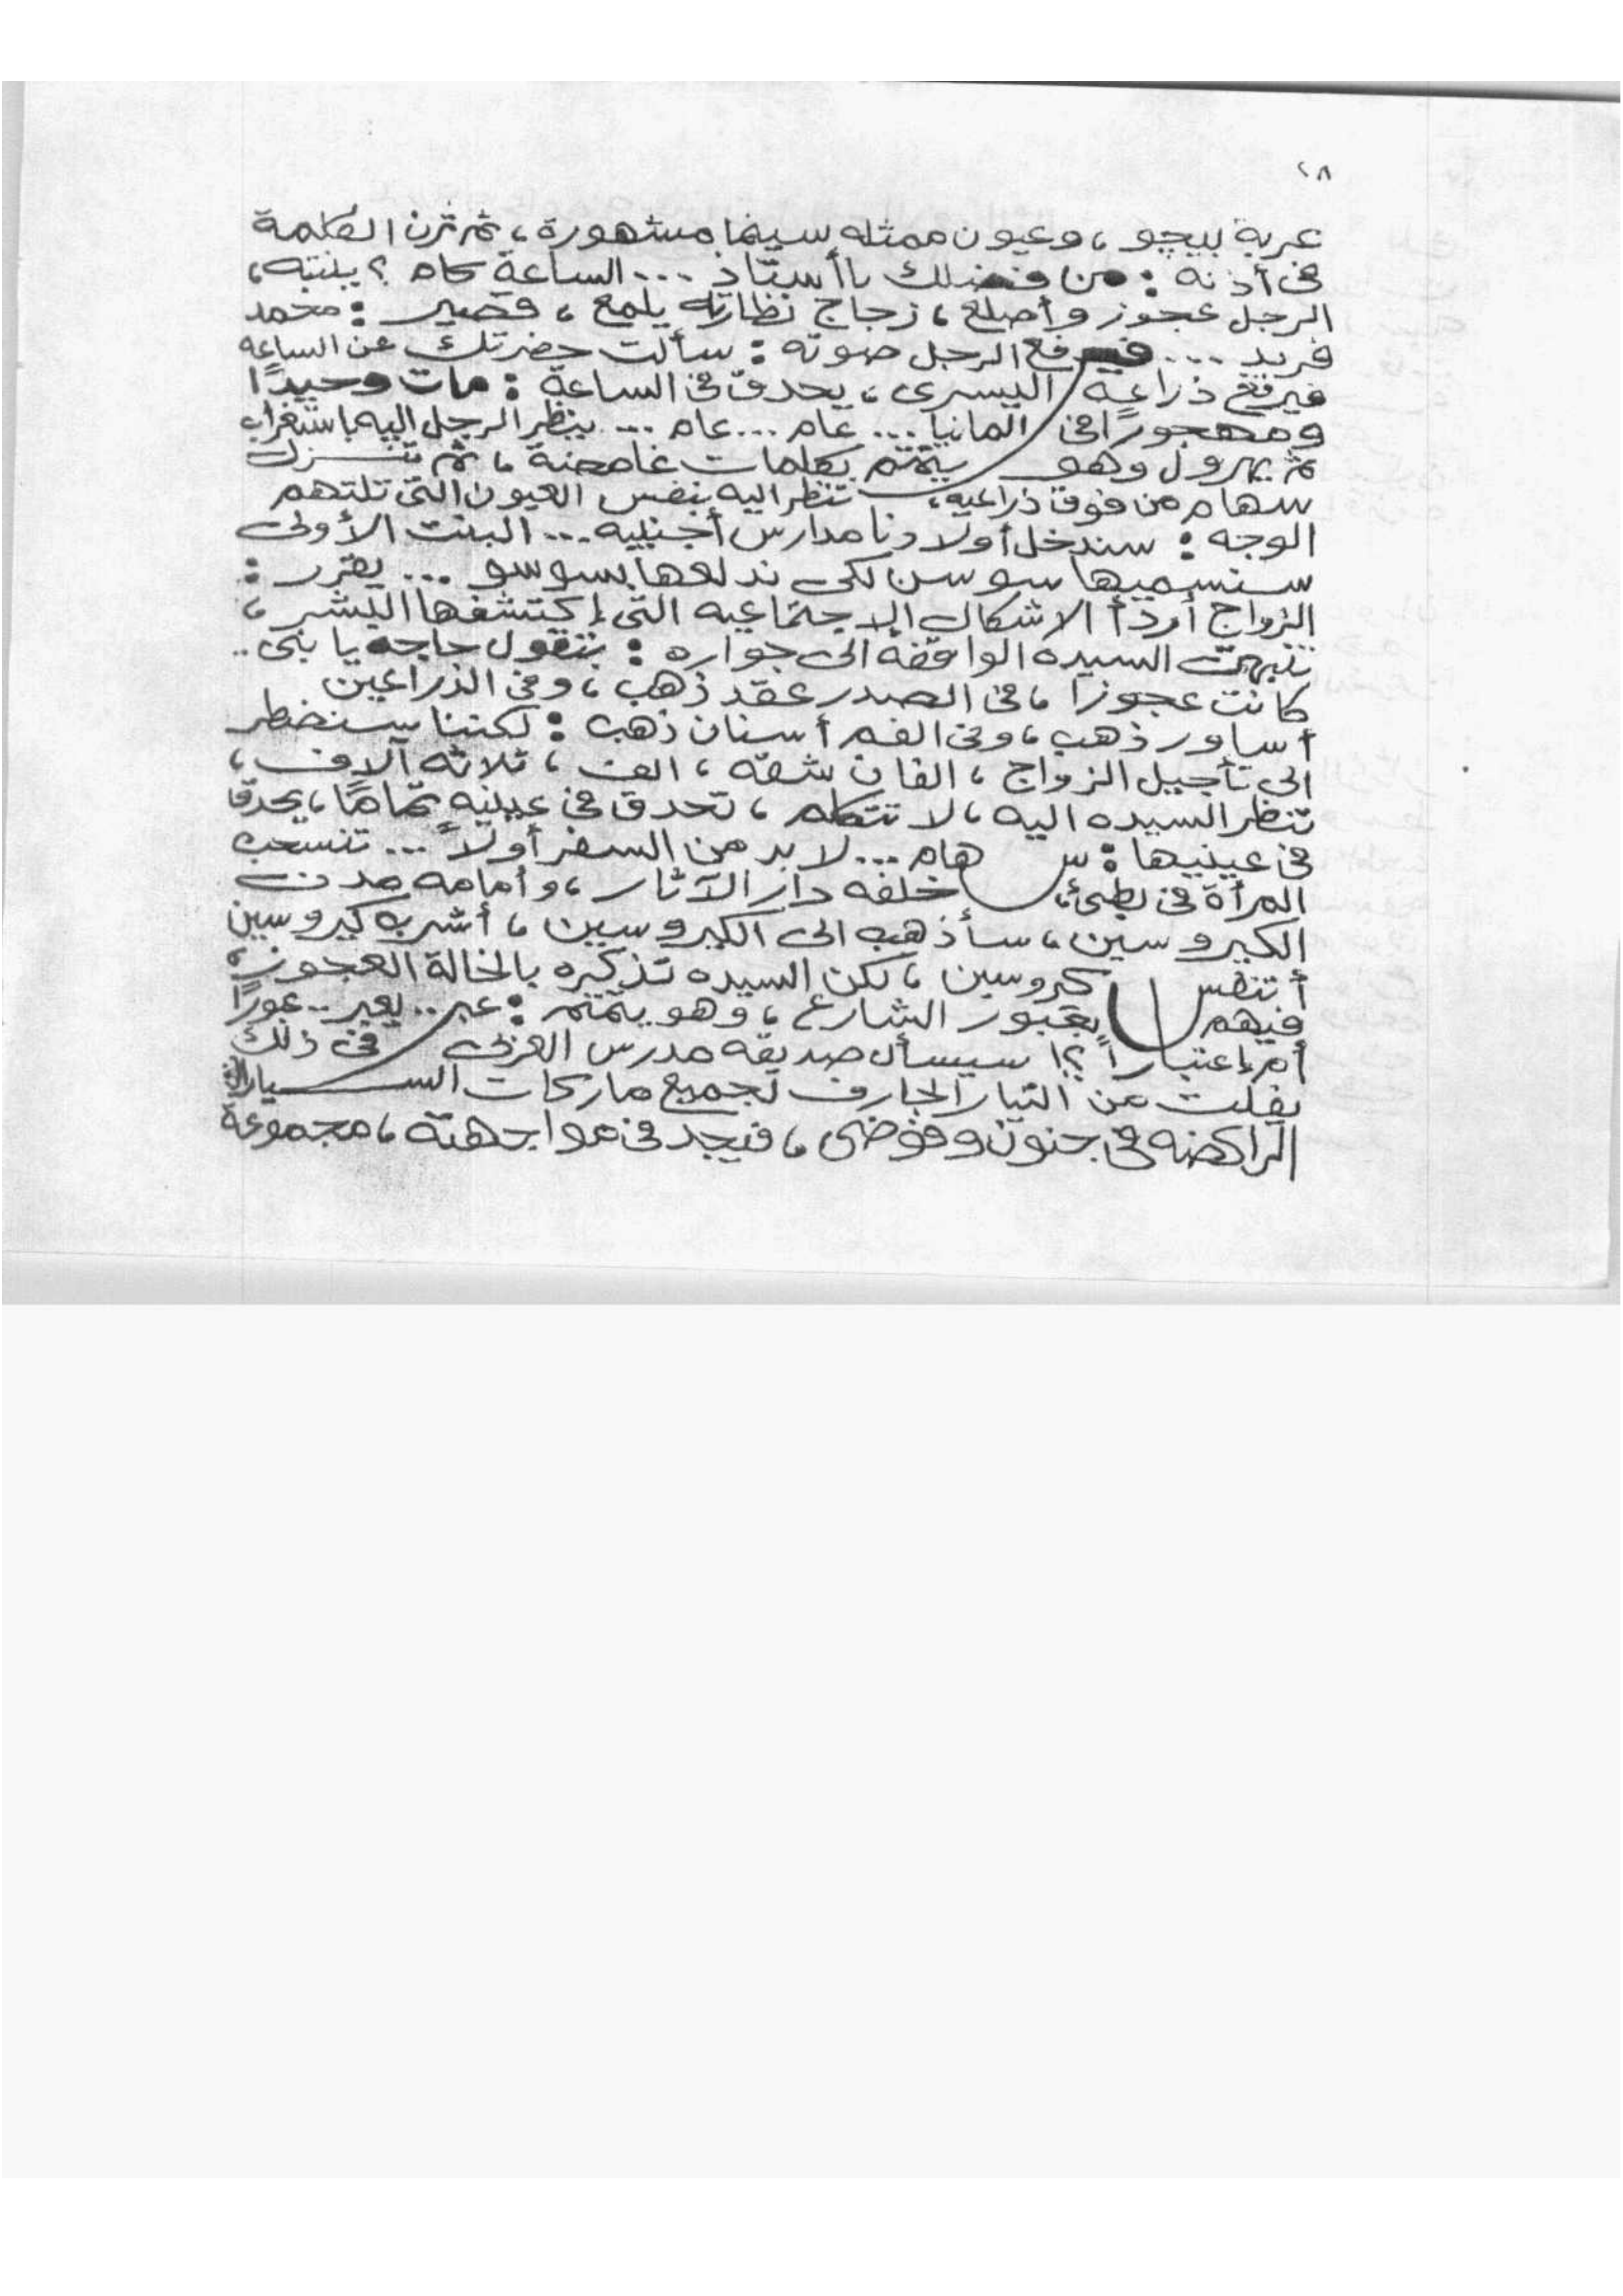 ٢٨
عربة بيچو ، وعيون ممثله سينما مشهورة ، ثم ترن الكلمة
فى أذنه : من فضلك ياأستاذ ... الساعة كام ؟ ينتبه ،
الرجل عجوز وأصلع ، زجاج نظارته يلمع ، قصير : محمد
فريد ... فيرفع الرجل صوته : سألت حضرتك عن الساعه
فيرفع ذراعه اليسرى ، يحدق فى الساعة : مات وحيدًا
ومهجورًا فى المانيا ... عام ... عام ... ينظر الرجل اليه باستغراب
ثم يهرول وهو يتمتم بكلمات غامضة ، ثم تنزل
سهام من فوق ذراعيه ، تنظر اليه بنفس العيون التى تلتهم
الوجه : سندخل أولادنا مدارس أجنبيه ... البنت الأولى
سنسميها سوسن لكى ندلعها بسوسو ... يقرر :
الزواج أردأ الاشكال الإجتماعيه التى إكتشفها البشر ،
تنبهت السيده الواقفه الى جواره : بتقول حاجه يا بنى ..
كانت عجوزًا ، فى الصدر عقد ذهب ، وفى الذراعين
أساور ذهب ، وفى الفم أسنان ذهب : لكننا سنضطر
الى تأجيل الزواج ، الفان شقه ، الف ، ثلاثه آلاف ،
تنظر السيده اليه ، لا تتكلم ، تحدق فى عينيه تمامًا ، يحدق
فى عينيها : س هام ... لا بد من السفر أولاً ... تنسحب
المرأة فى بطئ ، خلفه دار الآثار ، وأمامه مدن
الكيروسين ، سأذهب الى الكيروسين ، أشرب كيروسين
أتنفس كروسين ، لكن السيده تذكره بالخالة العجوز ،
فيهم بعبور الشارع ، وهو يتمتم : عبر .. يعبر .. عبورًا
أم إعتباراً ؟! سيسأل صديقه مدرس العربى فى ذلك
يفلت من التيار الجارف لجميع ماركات السيارات
الراكضه فى جنون وفوضى ، فيجد فى مواجهته ، مجموعة